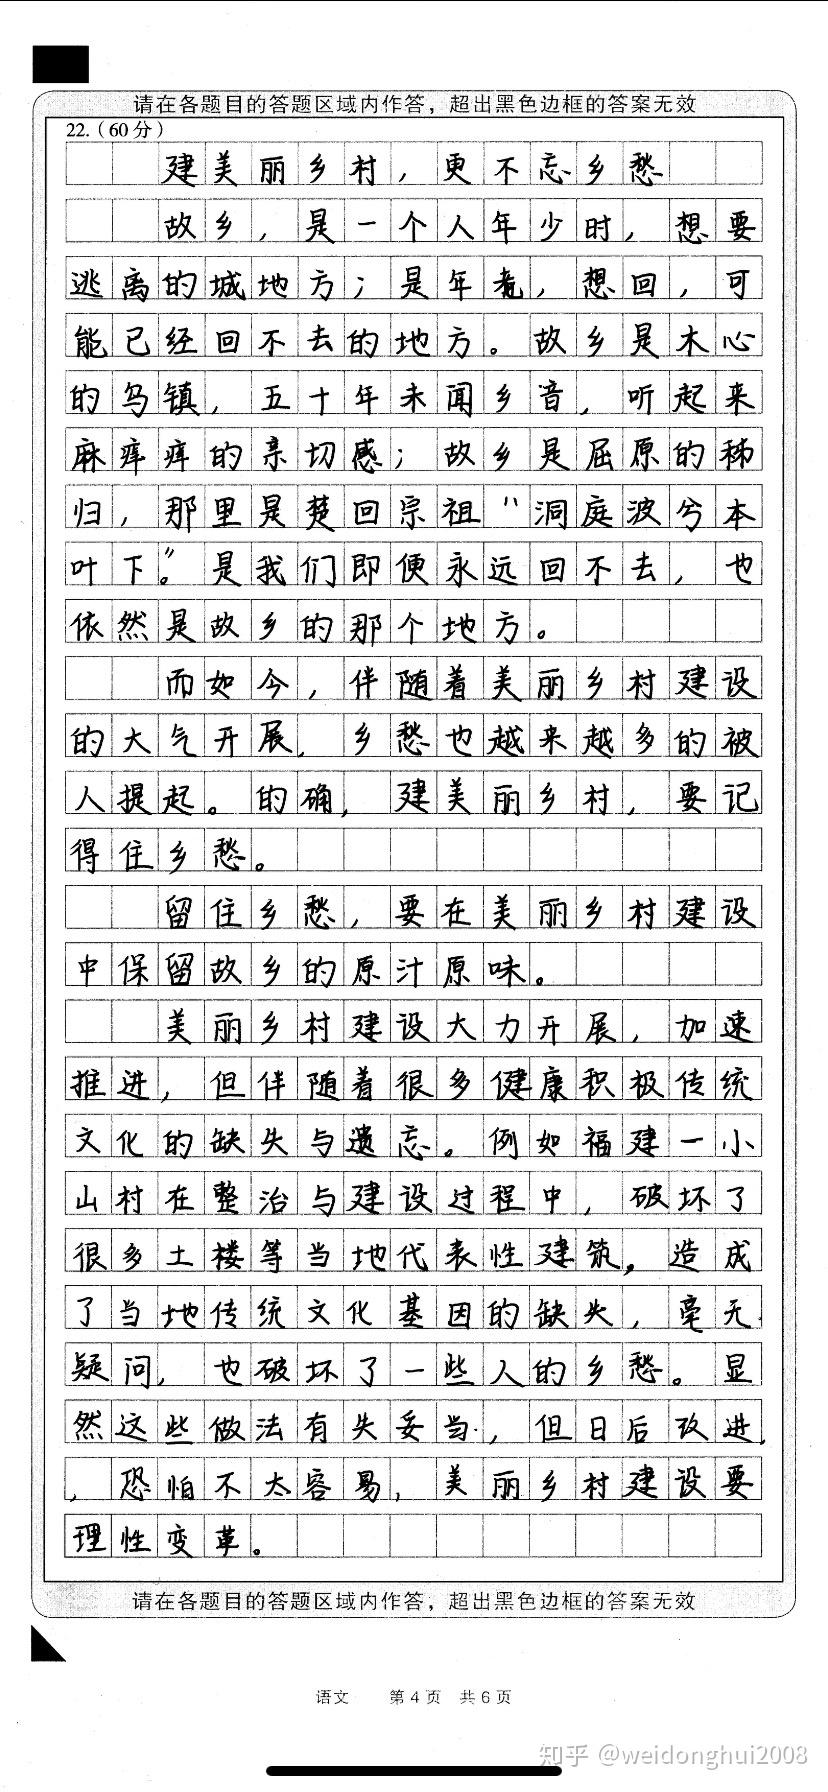 请在各题目的答题区域内作答，超出黑色边框的答案无效
22.（60分）
建美丽乡村，更不忘乡愁
故乡，是一个人年少时，想要
逃离的城地方；是年老，想回，可
能已经回不去的地方。故乡是木心
的乌镇，五十年未闻乡音，听起来
麻痒痒的亲切感；故乡是屈原的秭
归，那里是楚回宗祖“洞庭波兮本
叶下”。是我们即便永远回不去，也
依然是故乡的那个地方。
而如今，伴随着美丽乡村建设
的大气开展，乡愁也越来越多的被
人提起。的确，建美丽乡村，要记
得住乡愁。
留住乡愁，要在美丽乡村建设
中保留故乡的原汁原味。
美丽乡村建设大力开展，加速
推进，但伴随着很多健康积极传统
文化的缺失与遗忘。例如福建一小
山村在整治与建设过程中，破坏了
很多土楼等当地代表性建筑，造成
了当地传统文化基因的缺失，毫无
疑问，也破坏了一些人的乡愁。显
然这些做法有失妥当，但日后改进，
，恐怕不太容易，美丽乡村建设要
理性变革。
请在各题目的答题区域内作答，超出黑色边框的答案无效
语文 第4页 共6页
知乎 @weidonghui2008